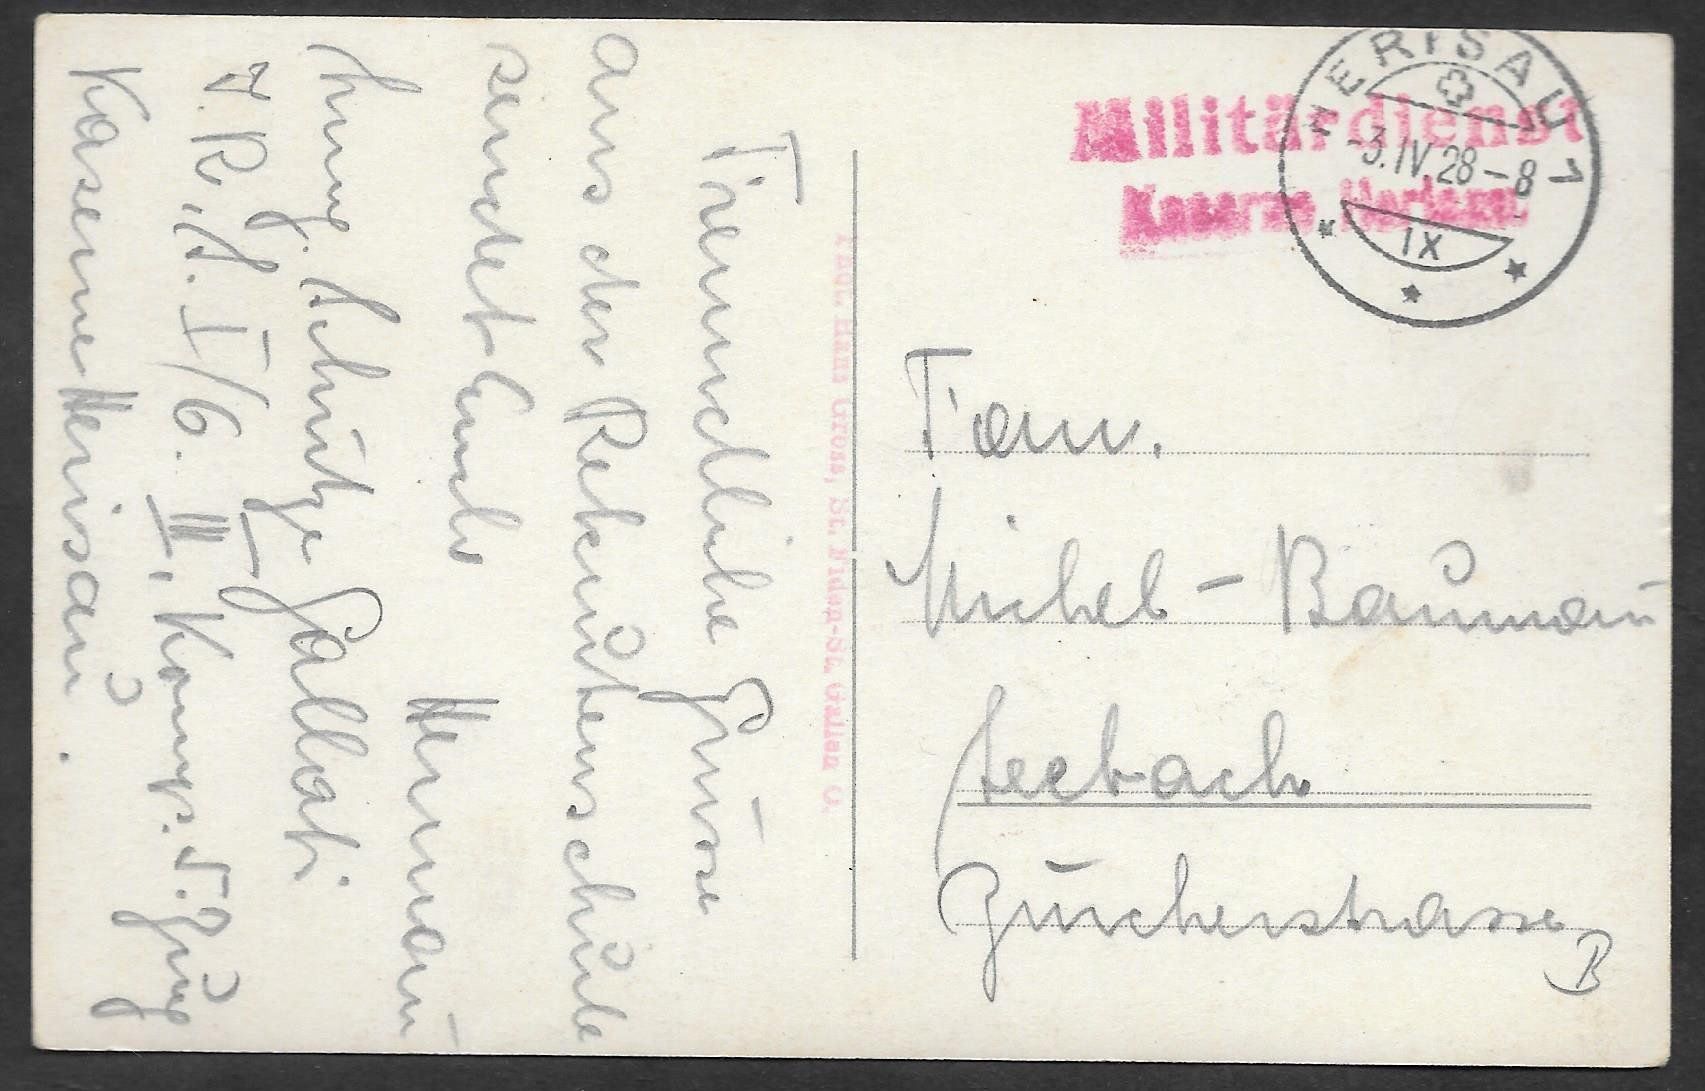 Freundliche Grüsse
aus der Rekrutenschule
sendet Euch
Hermann
Schütze Gallati
J.R.S. I/6. III. Komp. 5. Zug
Kaserne Herisau.
Hans Gross, St. Fiden-St. Gallen O.
Militärdienst
Kaserne Herisau.
HERISAU 1
-3.IV.28-8
IX
Fam.
Michel-Baumann
Seebach
Zürcherstrasse
B